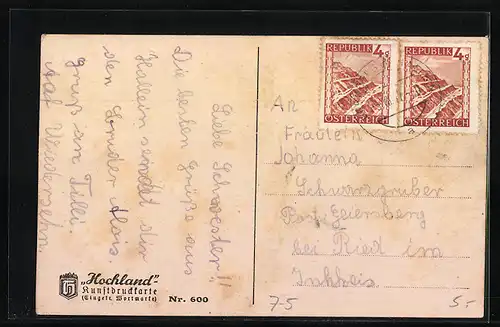 Liebe Schwester!!
Die besten Grüße aus
Hallein sendet dir
den Bruder Alois.
Gruß an Tilli.
Auf Wiedersehn.
REPUBLIK 4g
ÖSTERREICH
REPUBLIK 4g
ÖSTERREICH
An
Fräulein
Johanna
Schwarzgruber
Post Geiersberg
bei Ried im
Innkreis
"Hochland"-
Kunstdruckkarte
(Eingetr. Wortmarke)
Nr. 600
75
5.-